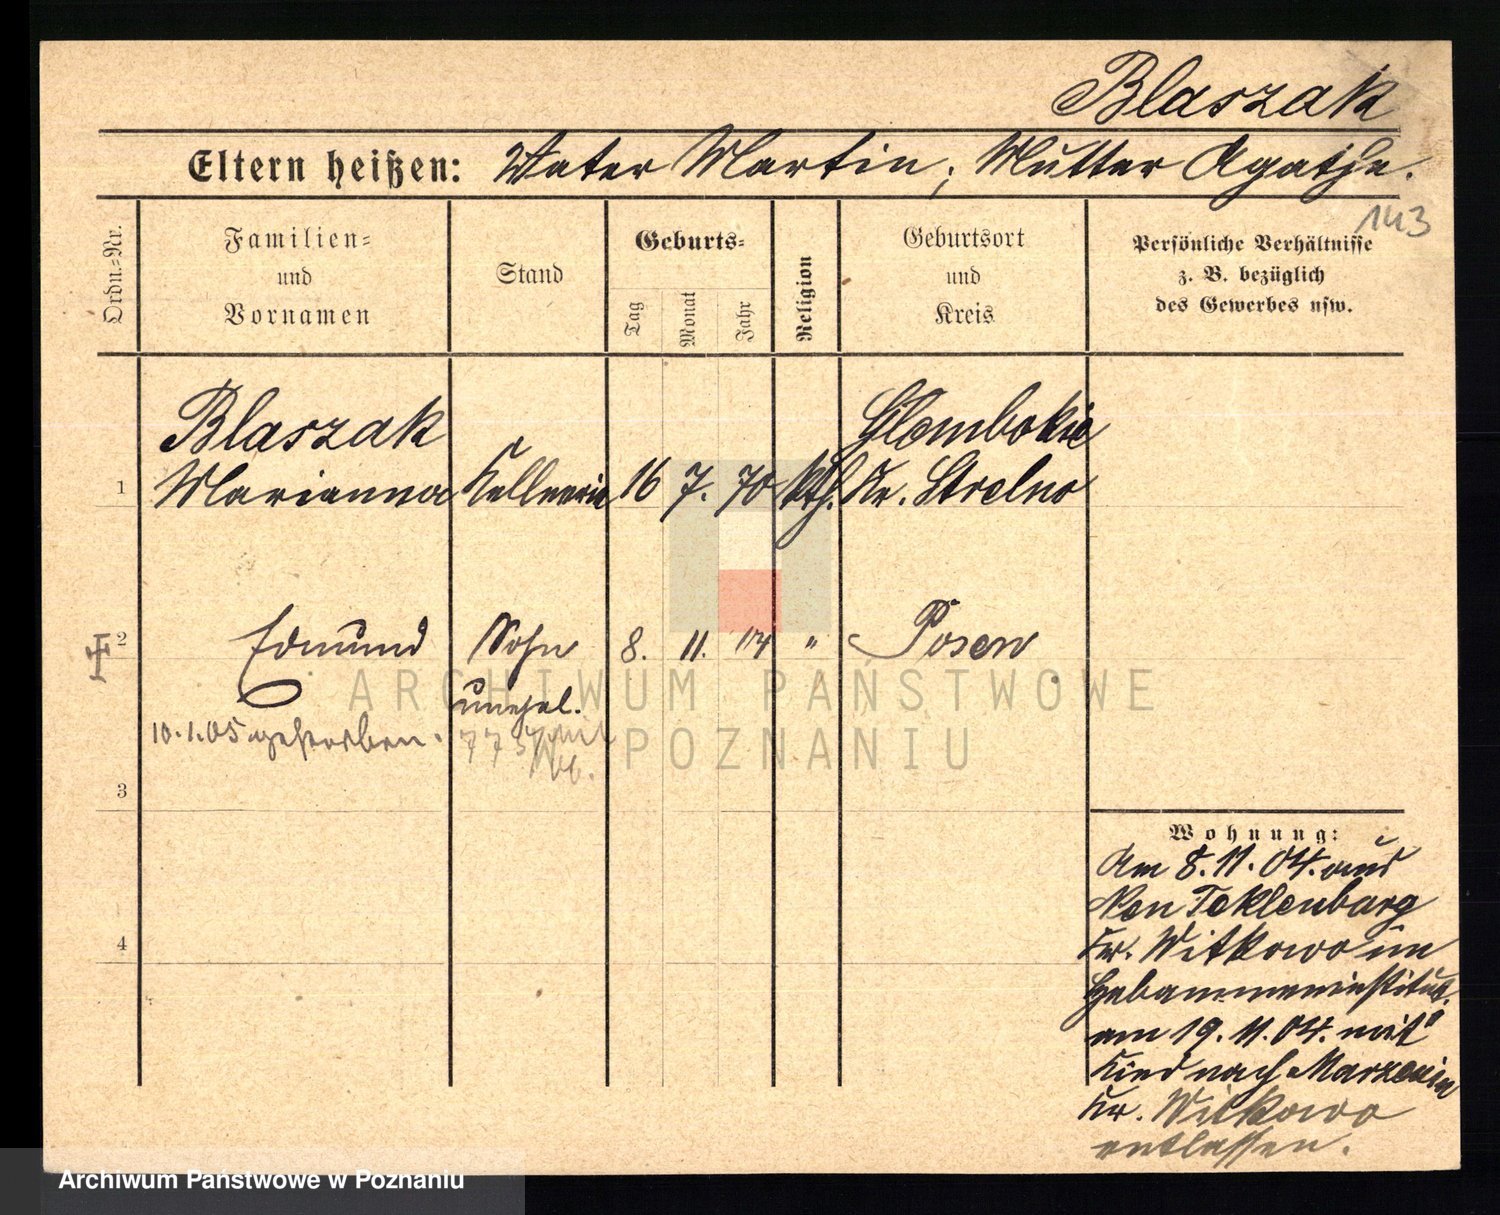 Blaszak
Eltern heißen: Vater Martin; Mutter Agathe.
143
Ordn.-Nr.
Familien-
und
Vornamen
Stand
Geburts-
Tag
Monat
Jahr
Religion
Geburtsort
und
Kreis
Persönliche Verhältnisse
z. B. bezüglich
des Gewerbes usw.
Blaszak Glembokie
1 Marianna Kellnerin 16 7. 70 kth. Kr. Strelno
2 Edmund Sohn 8. 11. 04 " Posen
unehel.
10.1.05 gestorben.
3
4
Wohnung:
Am 8.11.04. aus
Neu Teklenburg
Kr. Witkowo im
Hebammeninstitut.
am 19.11.04. mit
Kind nach Marzenin
Kr. Witkowo
entlassen.
ARCHIWUM PAŃSTWOWE
W POZNANIU
Archiwum Państwowe w Poznaniu